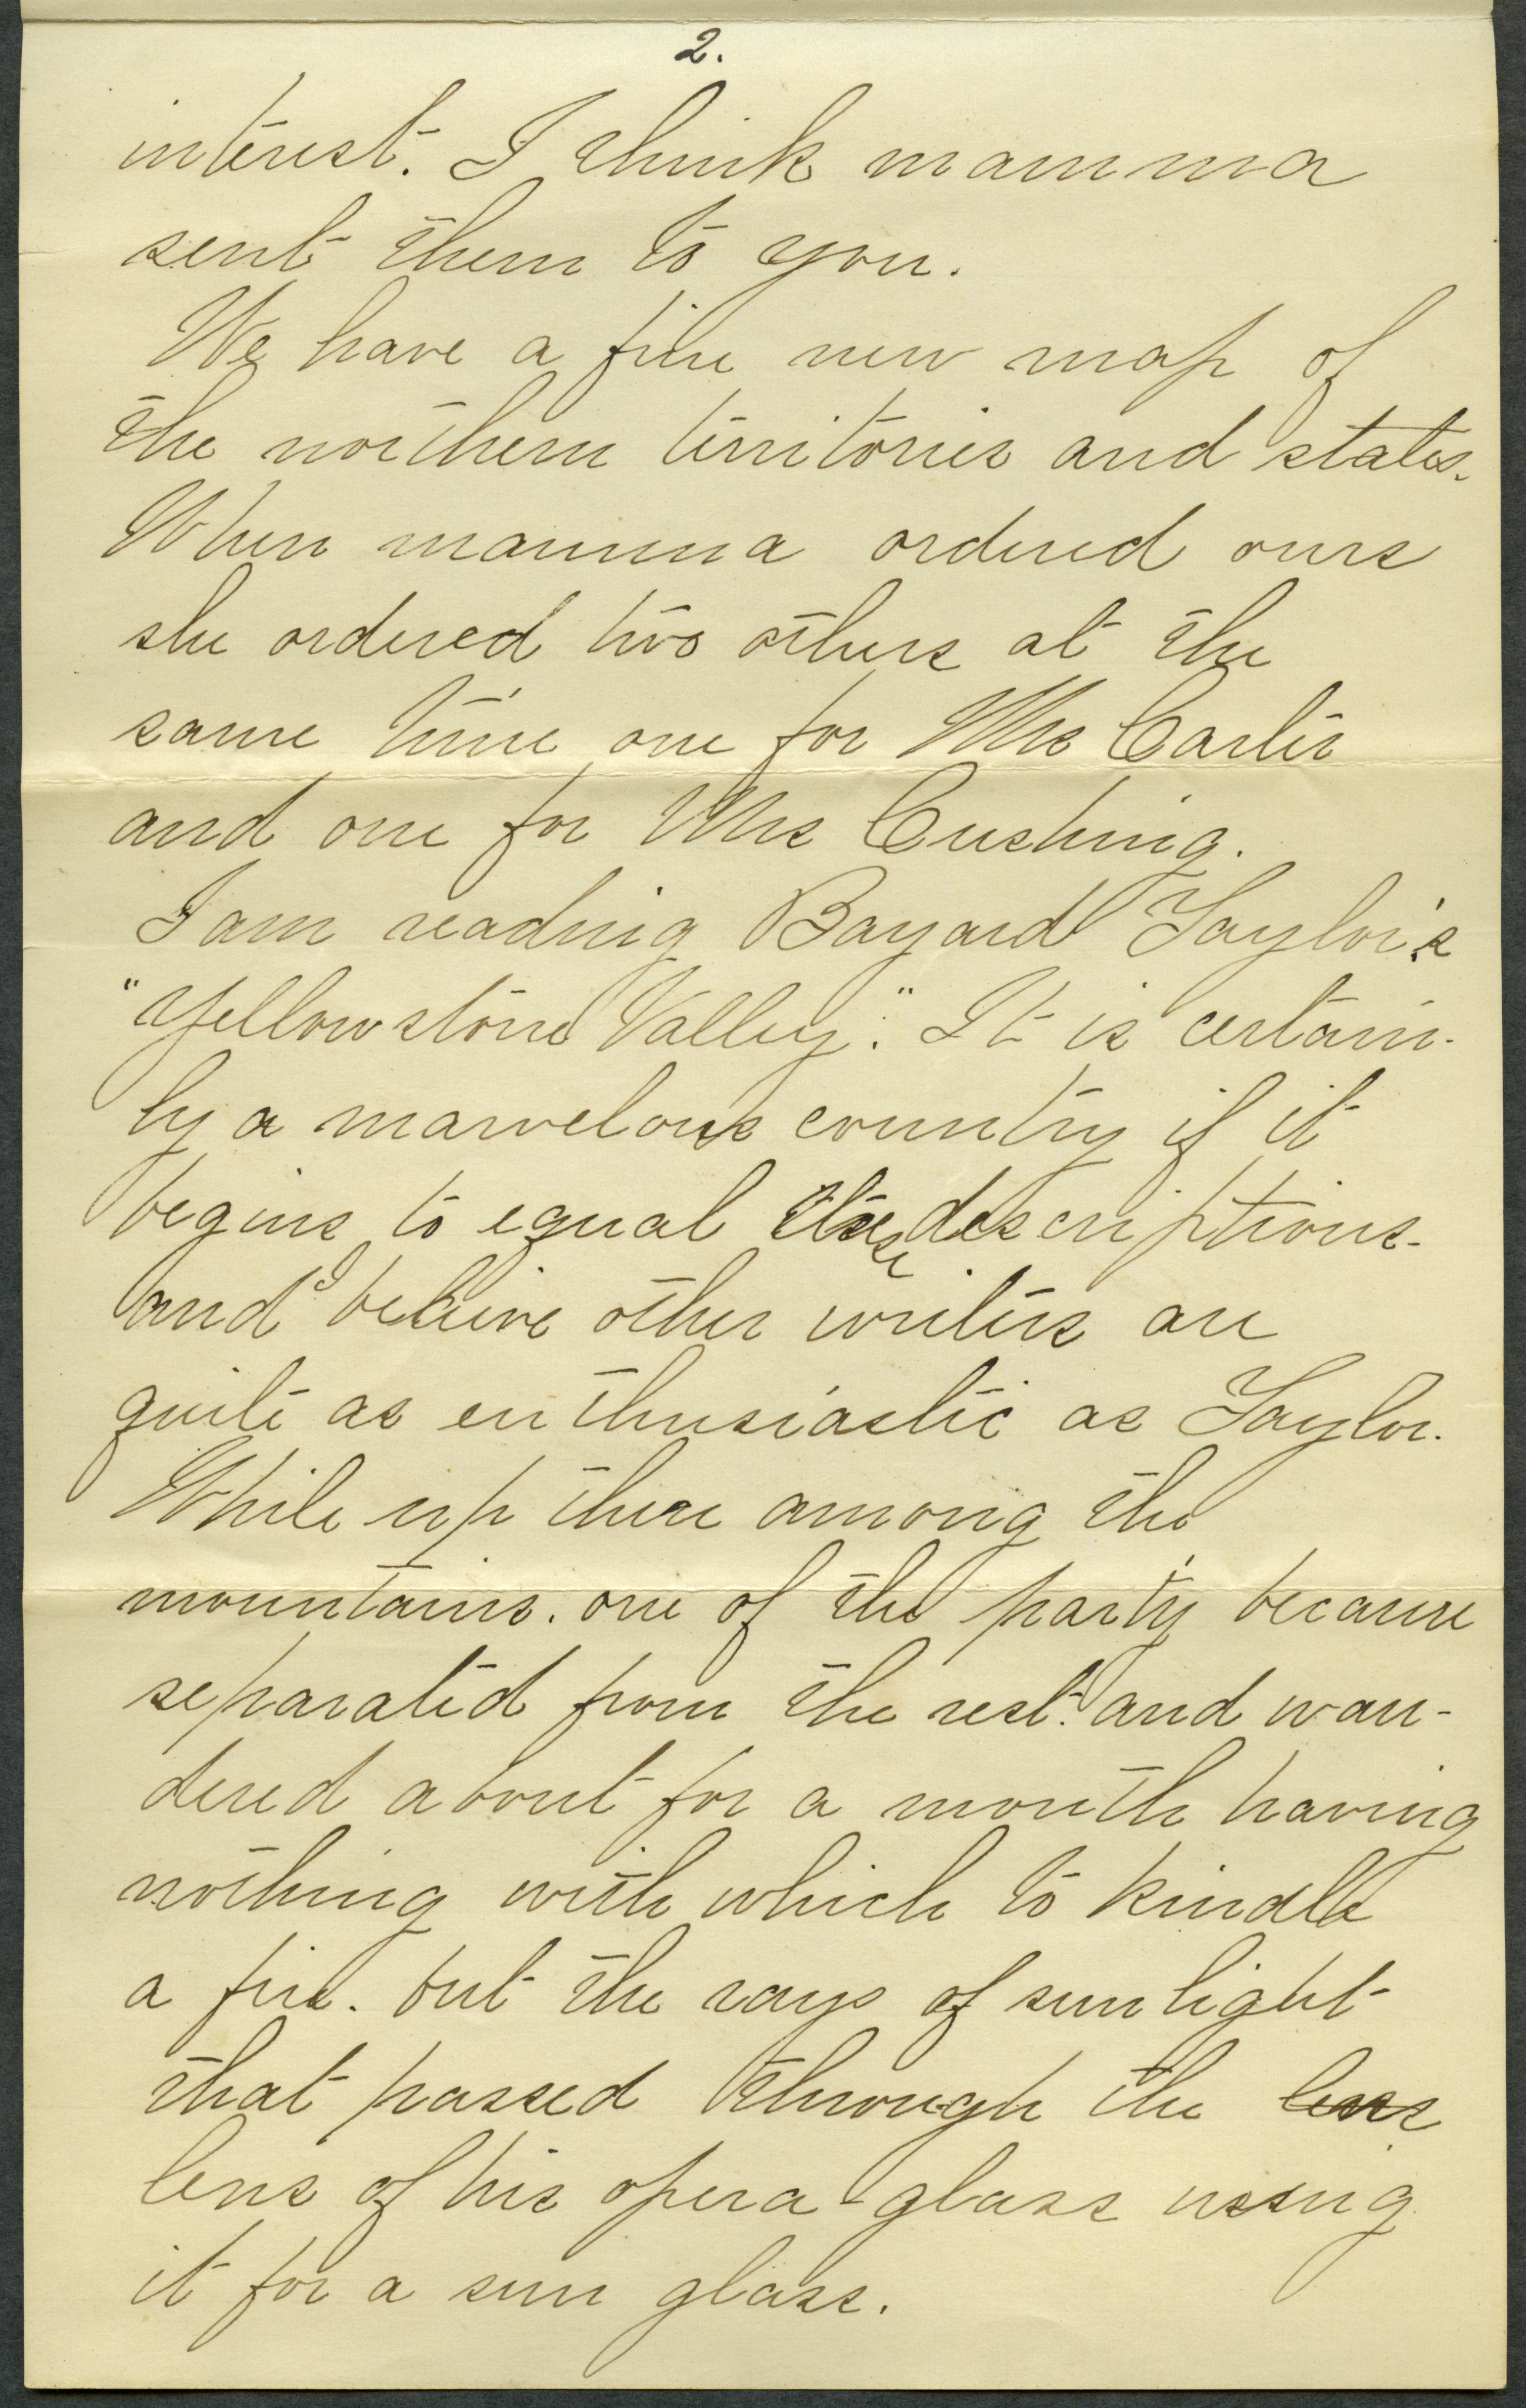 2.
interest. I think mamma
sent them to you.
We have a fine new map of
the northern territories and states.
When mamma ordered ours
she ordered two others at the
same time one for Mrs Carter
and one for Mrs Cushing.
I am reading Bayard Taylor's
"Yellowstone Valley." It is certain-
ly a marvelous country if it
begins to equal these descriptions.
and I believe other writers are
quite as enthusiastic as Taylor.
While up there among the
mountains. one of the party became
separated from the rest. and wan-
dered about for a month having
nothing with which to kindle
a fire. but the rays of sunlight
that passed through the lens
lens of his opera-glass using
it for a sun glass.